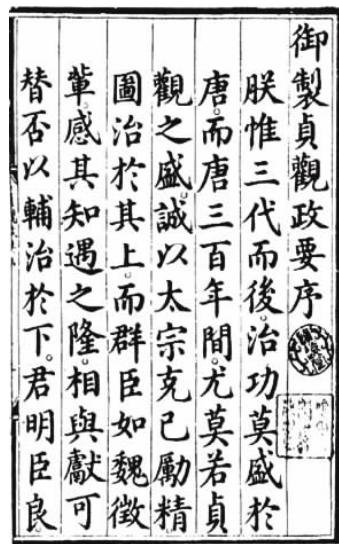 御製貞觀政要序
朕惟三代而後。治功莫盛於
唐。而唐三百年間。尤莫若貞
觀之盛。誠以太宗克己勵精
圖治於其上。而群臣如魏徵
輩。感其知遇之隆。相與獻可
替否以輔治於下。君明臣良。